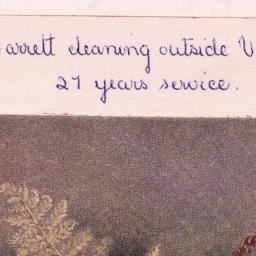 arrett cleaning outside V
27 years service.